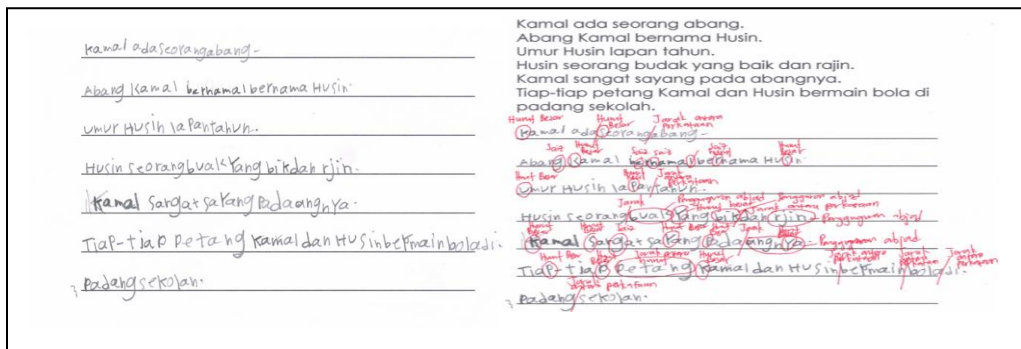 Kamal adaseorangabang-
Abang Kamal bernamal bernama Husin.
Umur Husin lapantahun.
Husin seorangbuak Yang bikdan rjin.
Kamal Sangat saYang Padaangnya.
Tiap-tiaP Petang Kamal dan Husinbermain boladi.
Padangsekolah.
Kamal ada seorang abang.
Abang Kamal bernama Husin.
Umur Husin lapan tahun.
Husin seorang budak yang baik dan rajin.
Kamal sangat sayang pada abangnya.
Tiap-tiap petang Kamal dan Husin bermain bola di
padang sekolah.
Huruf Besar Huruf Besar Jarak antara perkataan
Kamal adaseorangabang-
Saiz Huruf Besar Saiz Saiz Huruf Besar
Abang Kamal bernamal bernama Husin.
Huruf Besar Jarak antara perkataan
Umur Husin laPantahun.
Jarak Pengguguran abjad Pengguguran abjad
Husin seorangbuak Yang bikdan rjin - Pengguguran abjad
Huruf Besar Jarak antara perkataan
Kamal Sangat saYang Padaangnya - Pengguguran abjad
Huruf Besar Jarak antara huruf Huruf Besar Jarak antara perkataan Jarak antara perkataan
Tiap-tiaP Petang Kamal dan Husinbermain boladi.
Jarak antara perkataan
Padangsekolah.